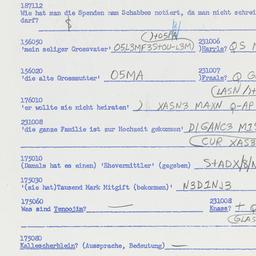 187112
Wie hat man die Spenden am Schabbes notiert, da man nicht schrei
darf? $
()+OSMA
156050 231006
'mein seliger Grossvater' O5L3MF35+OU-L3M) )Haryls? Q S
156020 231007
'die alte Grossmutter' O5MA )Frasle? Q G
(LASN
176010
'er wollte sie nicht heiraten' ) XASN3 MAXN Q-AP
231008
'die ganze Familie ist zur Hochzeit gekommen' DIGANC3 MI
(CUR XAS3
175010
(Damals hat es einen) 'Ehevermittler' (gegeben) S+ADX
175030
'(sie hat)Tausend Mark Mitgift (bekommen)' N3DINJ3
175060 231008
Was sind Tenoojim? — Knass? + Q
(GLAS
175080
Kallescherblein? (Aussprache, Bedeutung) —